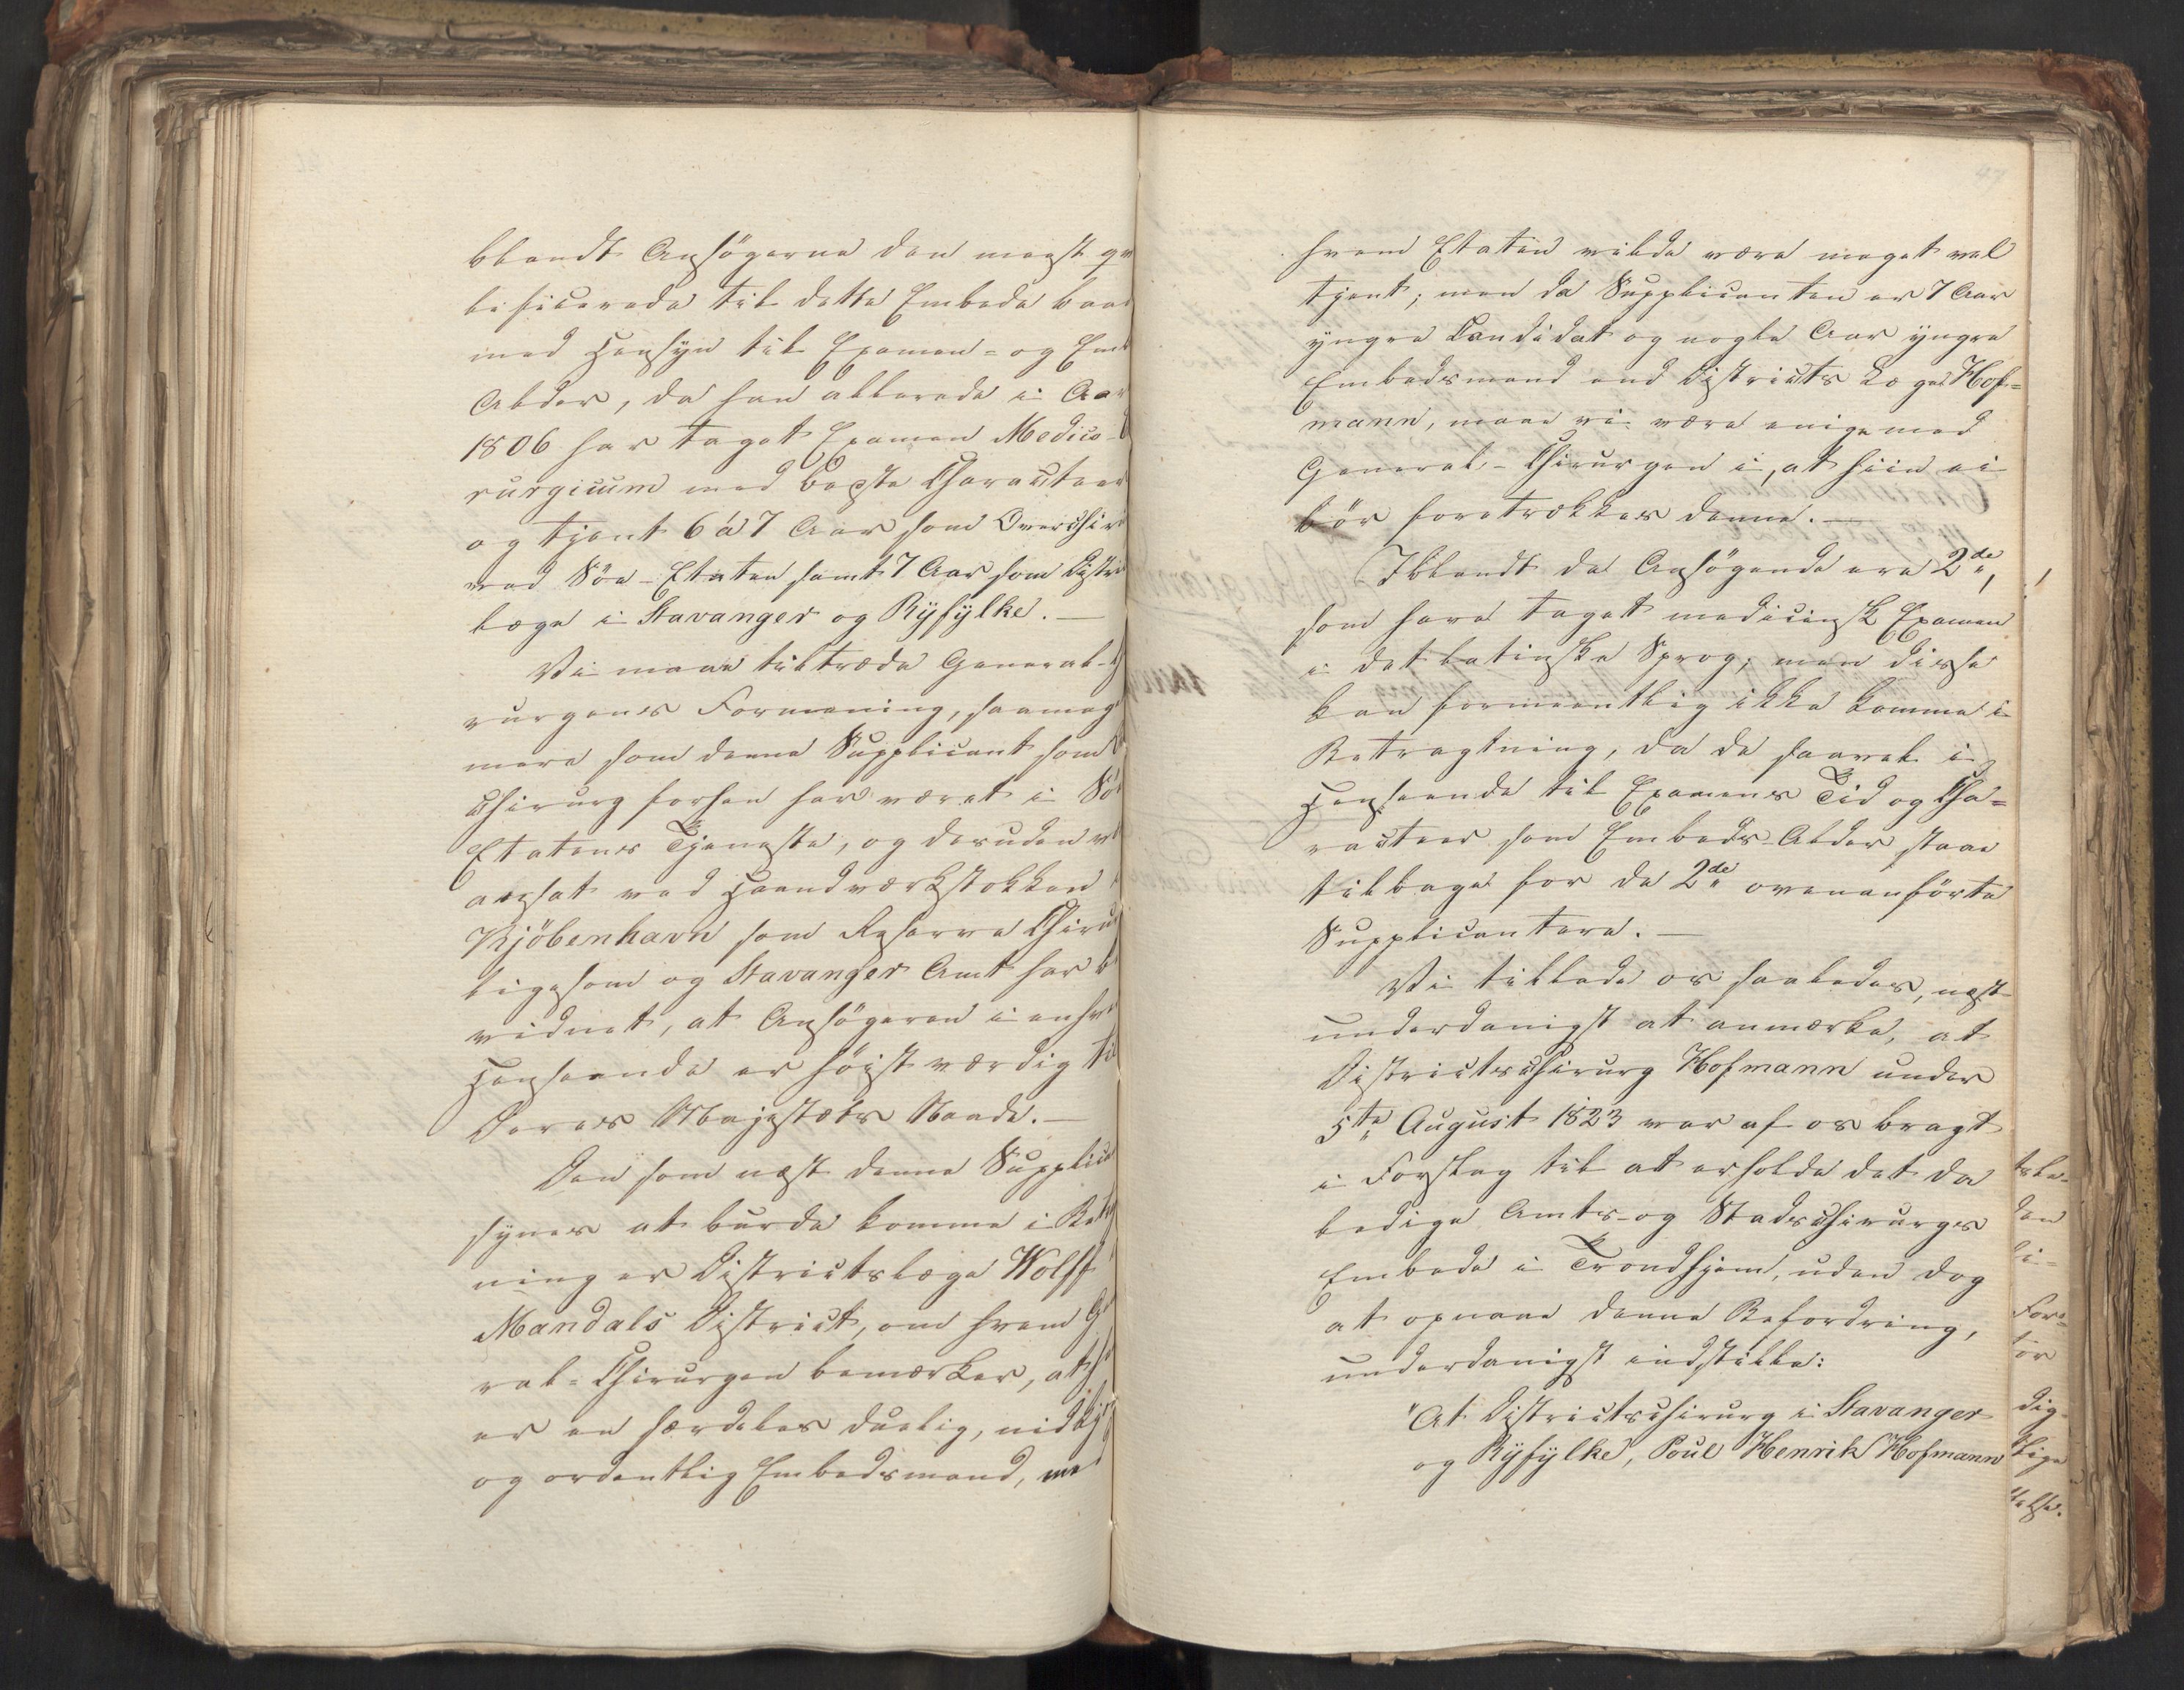 blandt Ansögerne den meest qva
lificerede til dette Embede baad
med Hensyn til Examen- og Emb
Alder, da han allerede i Aar
1806 har taget Examen Medico-
rurgicum med bedste Charakteer
og tjent 6 á 7 Aar som Overchir
ved Söe-Etaten samt 7 Aar som Distri
læge i Stavanger og Ryfylke. —
Vi maae tiltræde General-Ch
rurgens Formening, saameget
mere som denne Supplicant som
chirurg forhen har været i Sö
Etatens Tjeneste, og desuden
ansat ved Haandværkstokken
Kjöbenhavn som Reserve Chirur
ligesom og Stavanger Amt har be
vidnet, at Ansögeren i enhve
Henseende er höist værdig til
Deres Majestæts Naade. —
Den som næst denne Supplica
synes at burde komme i Betr
ning er Districtslæge Wolff
Mandals District, om hvem Ge
ral-Chirurgen bemærker, at h
er en særdeles duelig, nidkjer
og ordentlig Embedsmand, med
hvem Etaten vilde være meget vel
tjent; men da Supplicanten er 7 Aar
yngre Candidat og nogle Aar yngre
Embedsmand end Districts Læge Hof-
mann, maae vi være enige med
General-Chirurgen i, at hiin ei
bör foretrækkes denne. —
Iblandt de Ansögende ere 2de,
som have taget medicinsk Examen
i det latinske Sprog; men disse
kan formeentlig ikke komme i
Betragtning, da de saavel i
Henseende til Examens Tid og Cha-
racteer som Embeds-Alder staae
tilbage for de 2de ovenanförte
Supplicantere. —
Vi tillade os saaledes, næst
underdanigst at anmærke, at
Districtschirurg Hofmann under
5te August 1823 var af os bragt
i Forslag til at erholde det da
ledige Amts- og Stadschirurgs
Embede i Trondhjem, uden dog
at opnaae denne Befordring,
underdanigst indstille:
"At Districtschirurg i Stavanger
og Ryfylke, Poul Henrik Hofmann